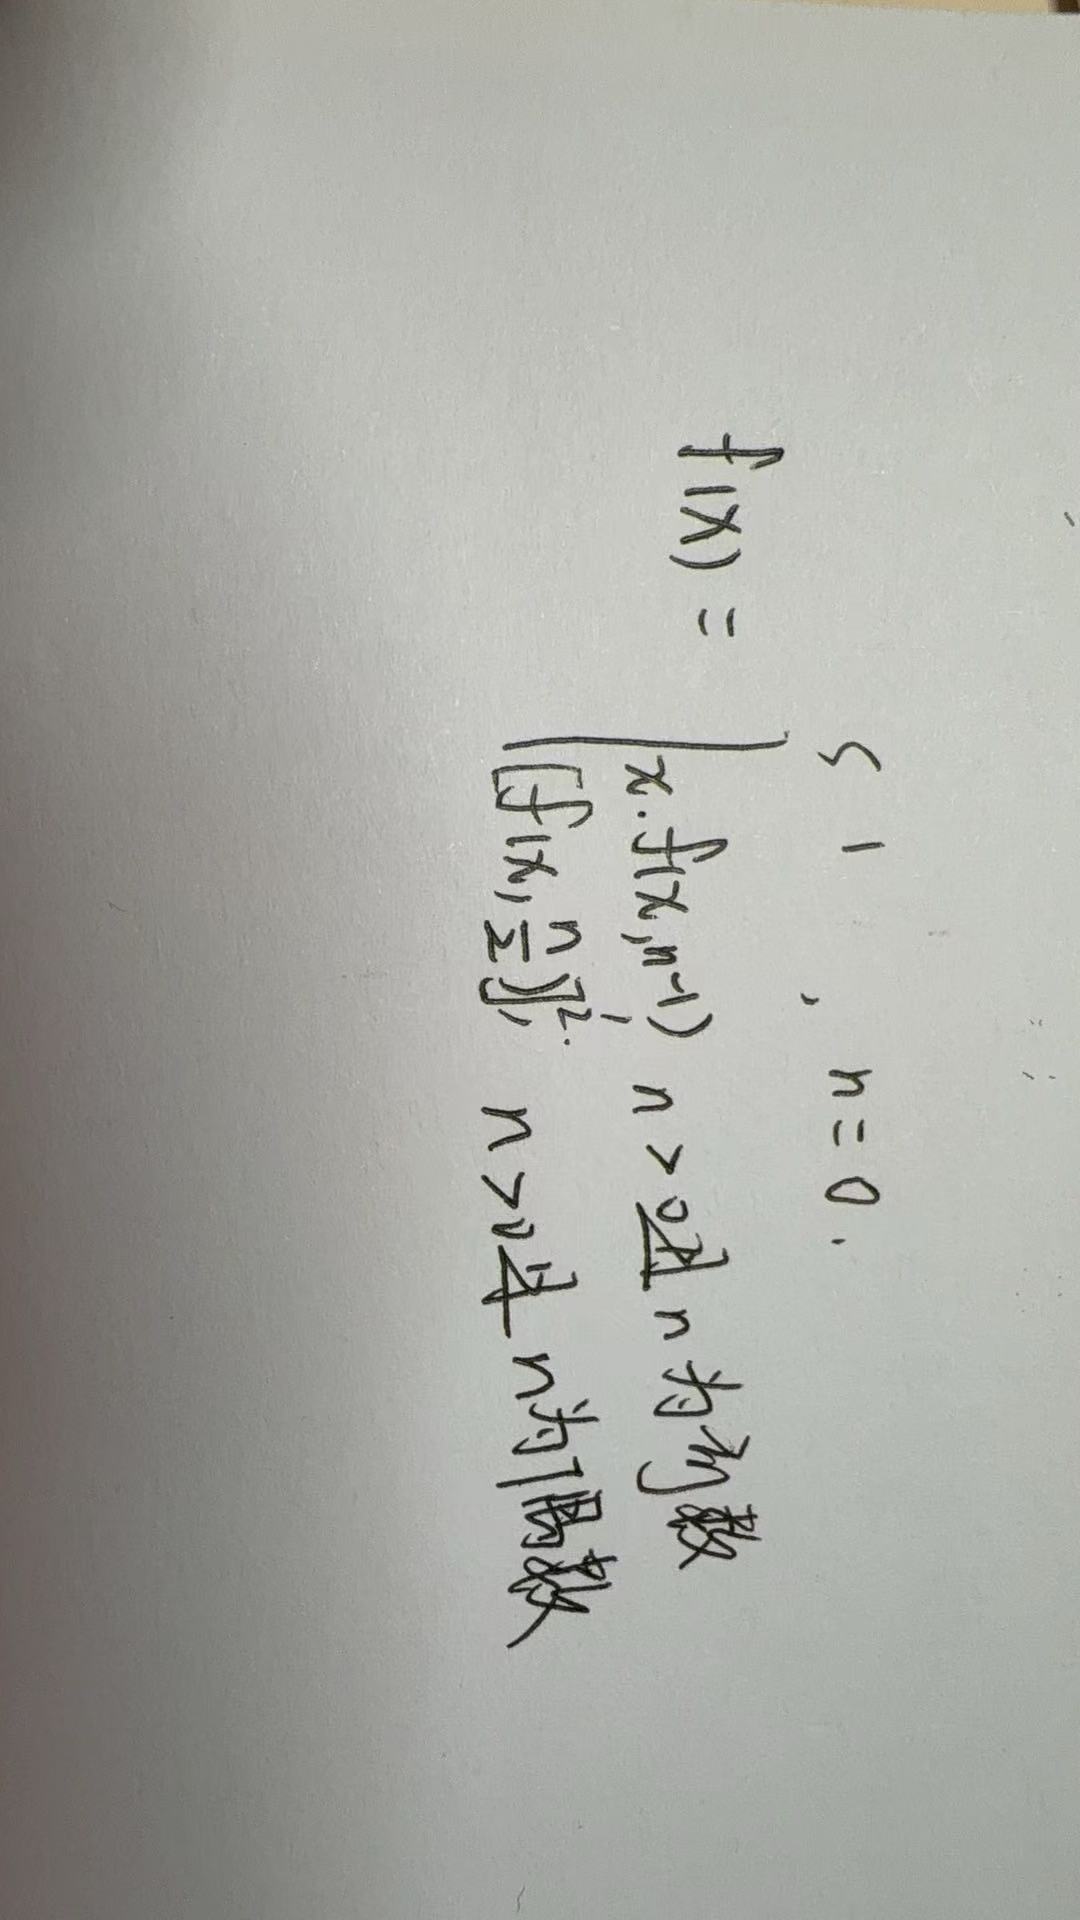 1 , n=0.
f(x) =
x·f(x,n-1), n>0且n为奇数
[f(x,n/2)]², n>0且n为偶数